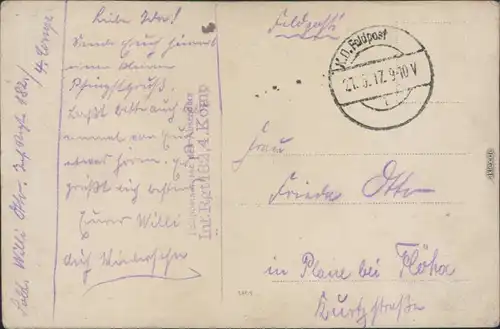 Feldpost!
K.D. Feldpost
27.5.17. 9-10 V
Liebe Ida!
Sende Euch hiermit
einen kleinen
Pfingstgruß.
Laßt bitte auch
einmal von Euch
etwas hören. Es
grüßt Dich bestens
Euer Willi
Auf Wiedersehn
Inf. Rgt. 182, 4. Komp
Sold. Willi Otto. Inf. Regt. 182,
4. Komp
Frau
Frieda Otto
in Plaue bei Flöha
Kurzestraße